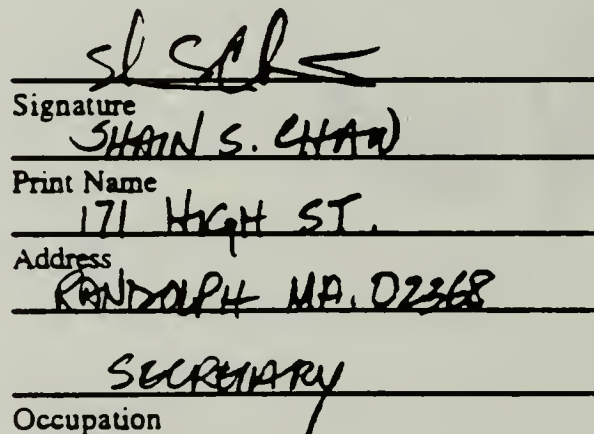 Signature
SHAIN S. CHAN
Print Name
171 HIGH ST.
Address
RANDOLPH MA. 02368
SECRETARY
Occupation